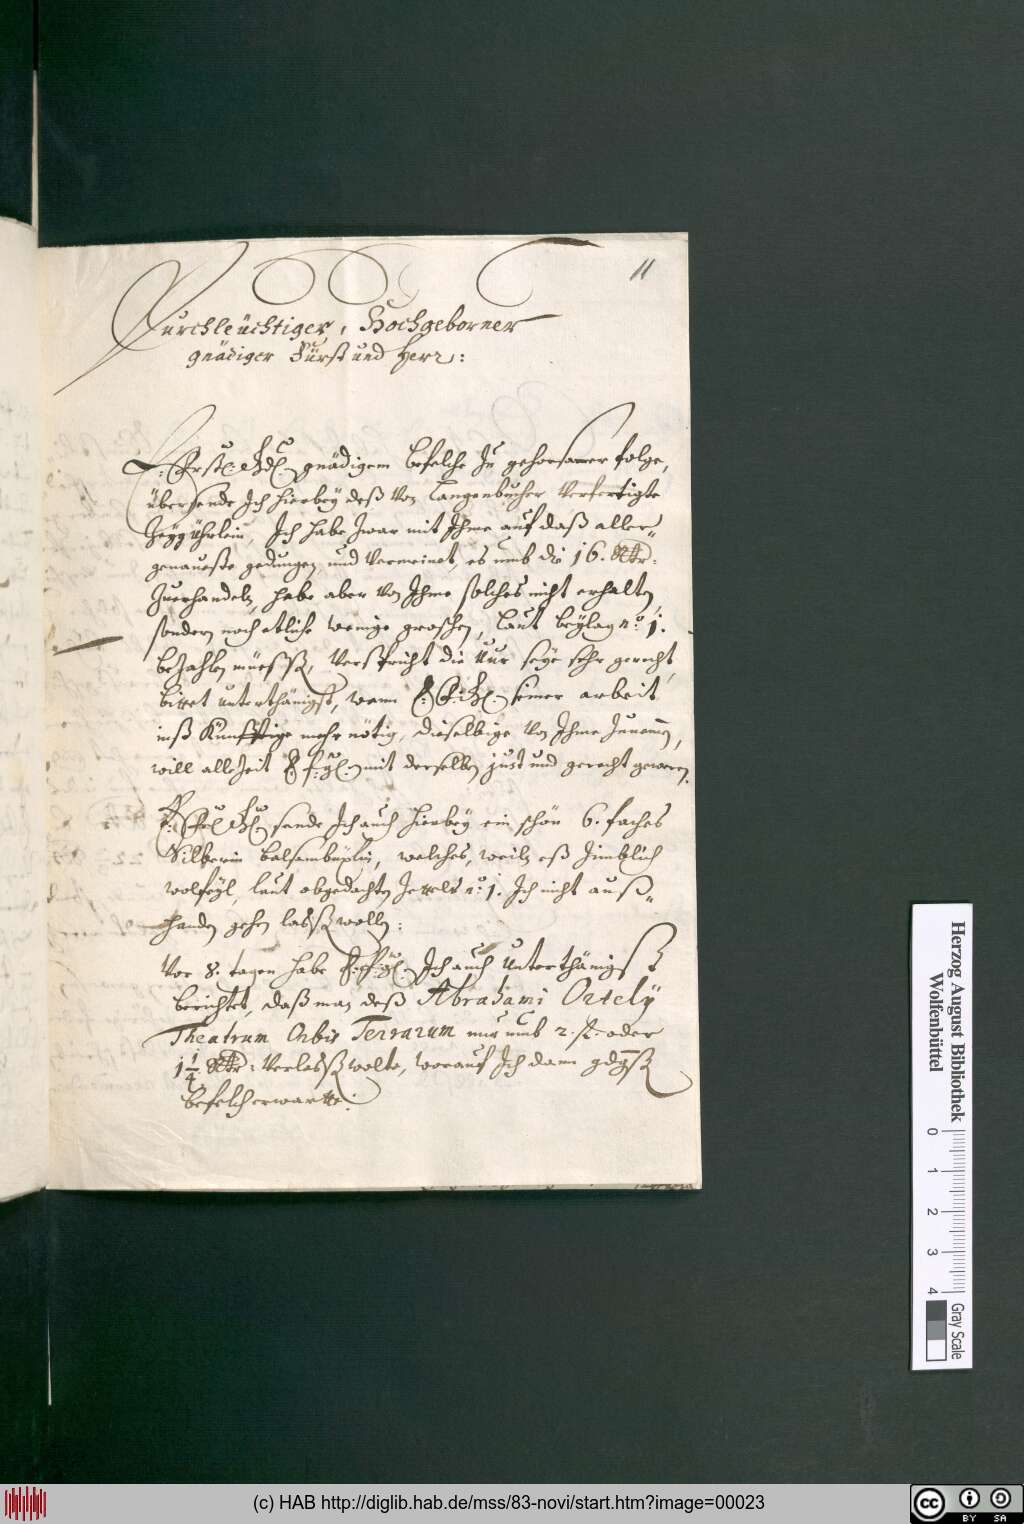 11
Durchleüchtiger, Hochgeborner
gnädiger Fürst und Herr:
E: Fürstl: Gd: gnädigem befelche zu gehorsamer folge,
übersende Ich hierbey deß von Langenbucher verfertigte
Zeygührlein, Ich habe zwar mit Ihme auf daß aller„
genaueste gedungen, und vermeinet, es umb die 16. Rthr:
zuerhandeln, habe aber von Ihme solches nicht erhalten,
sondern noch etliche wenige groschen, laut beylag no: 1.
bezahlen müeßen, verspricht die Uur seye sehr gerecht,
bittet unterthänigst, wann E: F: G: seiner arbeit
inß Künfftige mehr nötig, dieselbige von Ihme zunemen,
will allezeit E: F: G: mit derselben just und gerecht geweren.
E: Fr: G: sende Ich auch hierbey ein schön 6. faches
Silberin balsambüxlin, welches, weiln eß zimblich
wolfeyl, laut obgedachten Zettels no: 1. Ich nicht auß„
handen gehen lassen wollen:
Vor 8. tagen habe E: F: G: Ich auch unterthänigst
berichtet, daß man deß Abrahami Ortely
Theatrum Orbis Terrarum nur umb 2. fl. oder
1 1/4 Rthr: verlassen wolte, worauf Ich dann gdgst
befelch erwartte:
Herzog August Bibliothek
Wolfenbüttel
0 1 2 3 4
Gray Scale
(c) HAB http://diglib.hab.de/mss/83-novi/start.htm?image=00023
cc BY SA